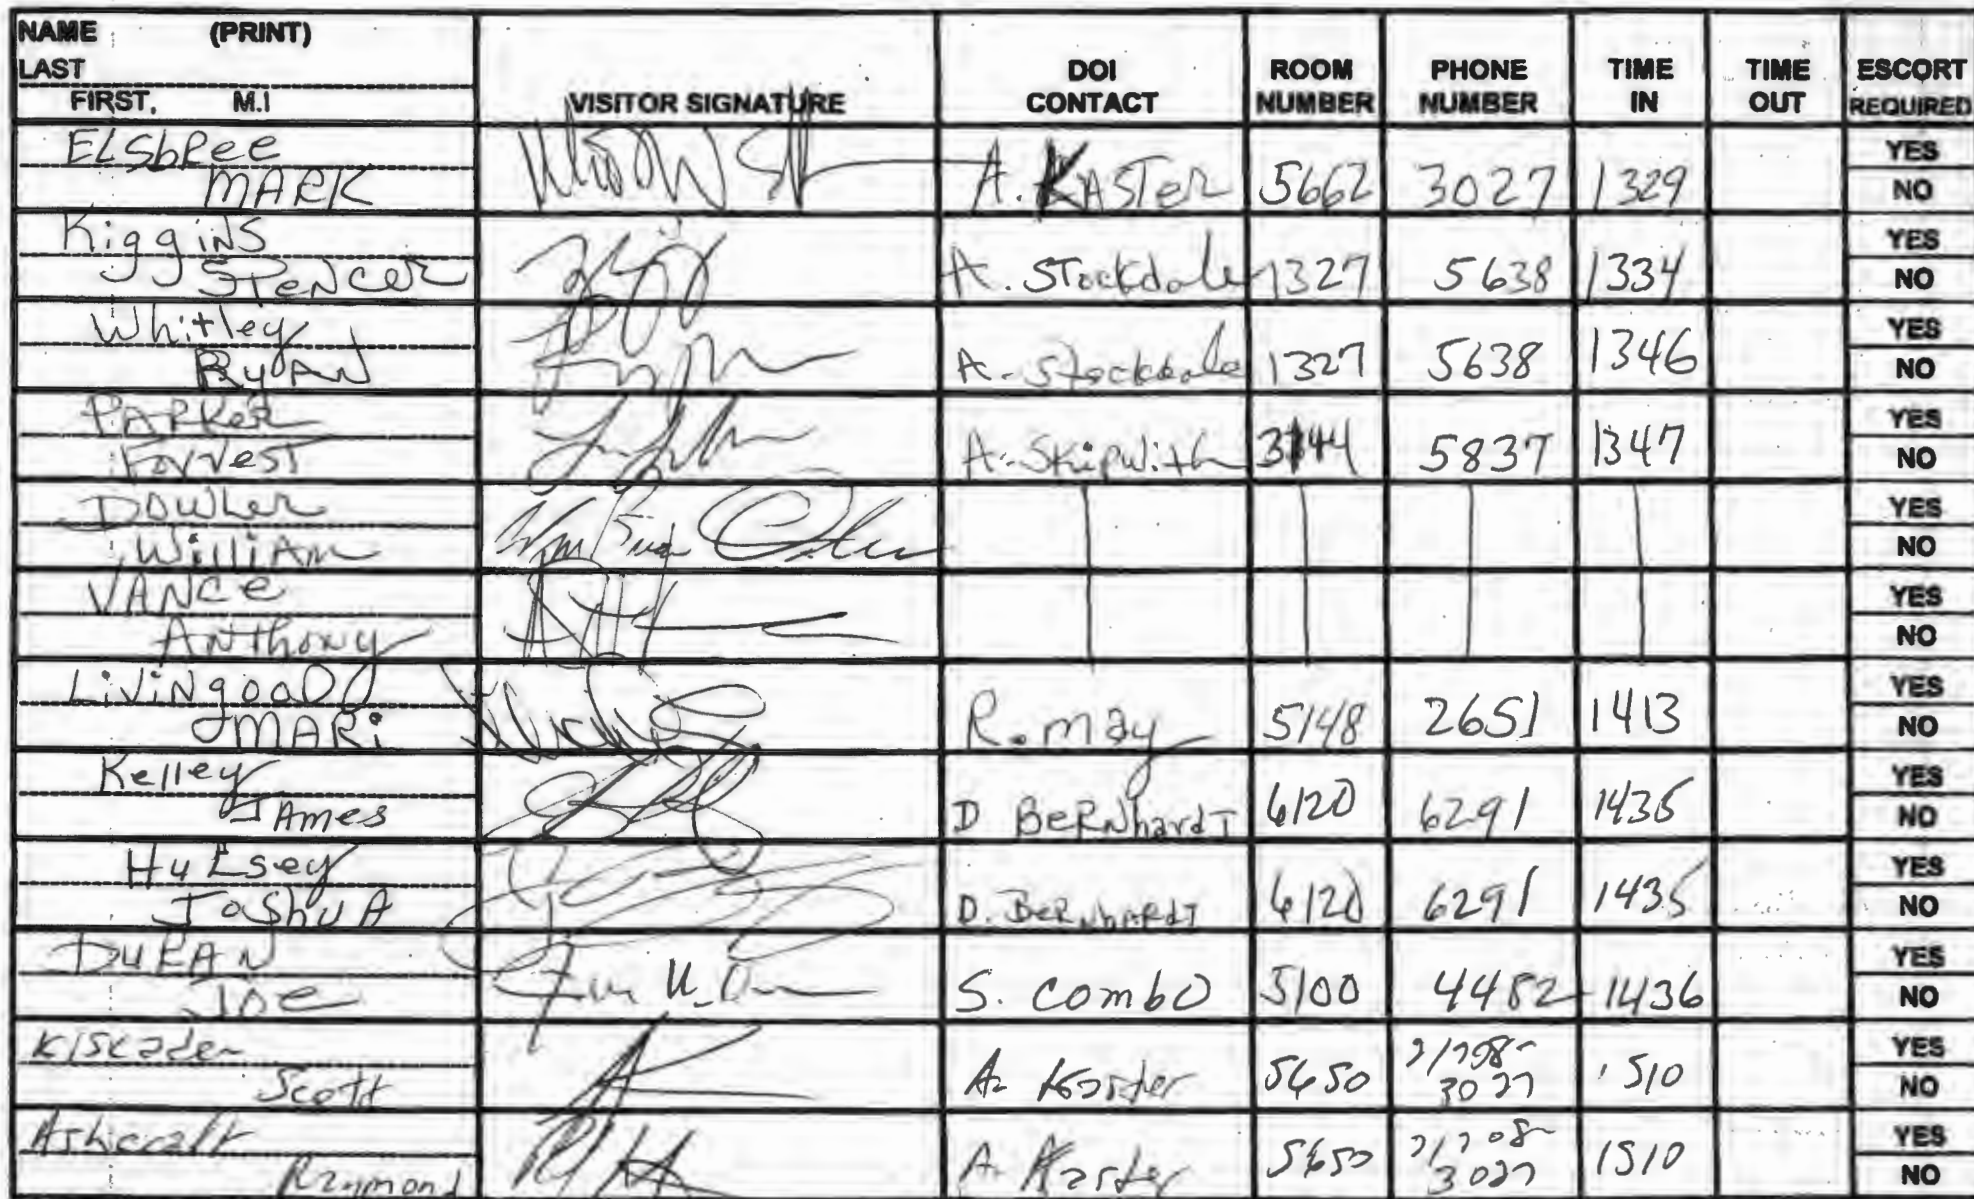 NAME (PRINT)
LAST
FIRST, M.I
VISITOR SIGNATURE
DOI CONTACT
ROOM NUMBER
PHONE NUMBER
TIME IN
TIME OUT
ESCORT REQUIRED
ELSbRee YES
MARK A. KASTer 5662 3027 1329 NO
Kiggins YES
SPeNCer A. STockdale 1327 5638 1334 NO
Whitley YES
RyAN A. Stockdale 1327 5638 1346 NO
PARKer YES
ForresT A. SkipWith 3144 5837 1347 NO
Dowler YES
WilliAm NO
VANCe YES
ANThony NO
LiViNgooD YES
MARi R. may 5148 2651 1413 NO
Kelley YES
JAmes D BeRNhardT 6120 6291 1435 NO
HuLsey YES
JoShuA D. BeRNhARdT 6120 6291 1435 NO
DuRAN YES
Joe S. Combo 5100 4482 1436 NO
Kiskaden YES
Scott A. Kaster 5650 3027 1510 NO
Ashcraft YES
Raymond A. Kaster 5650 3027 1510 NO